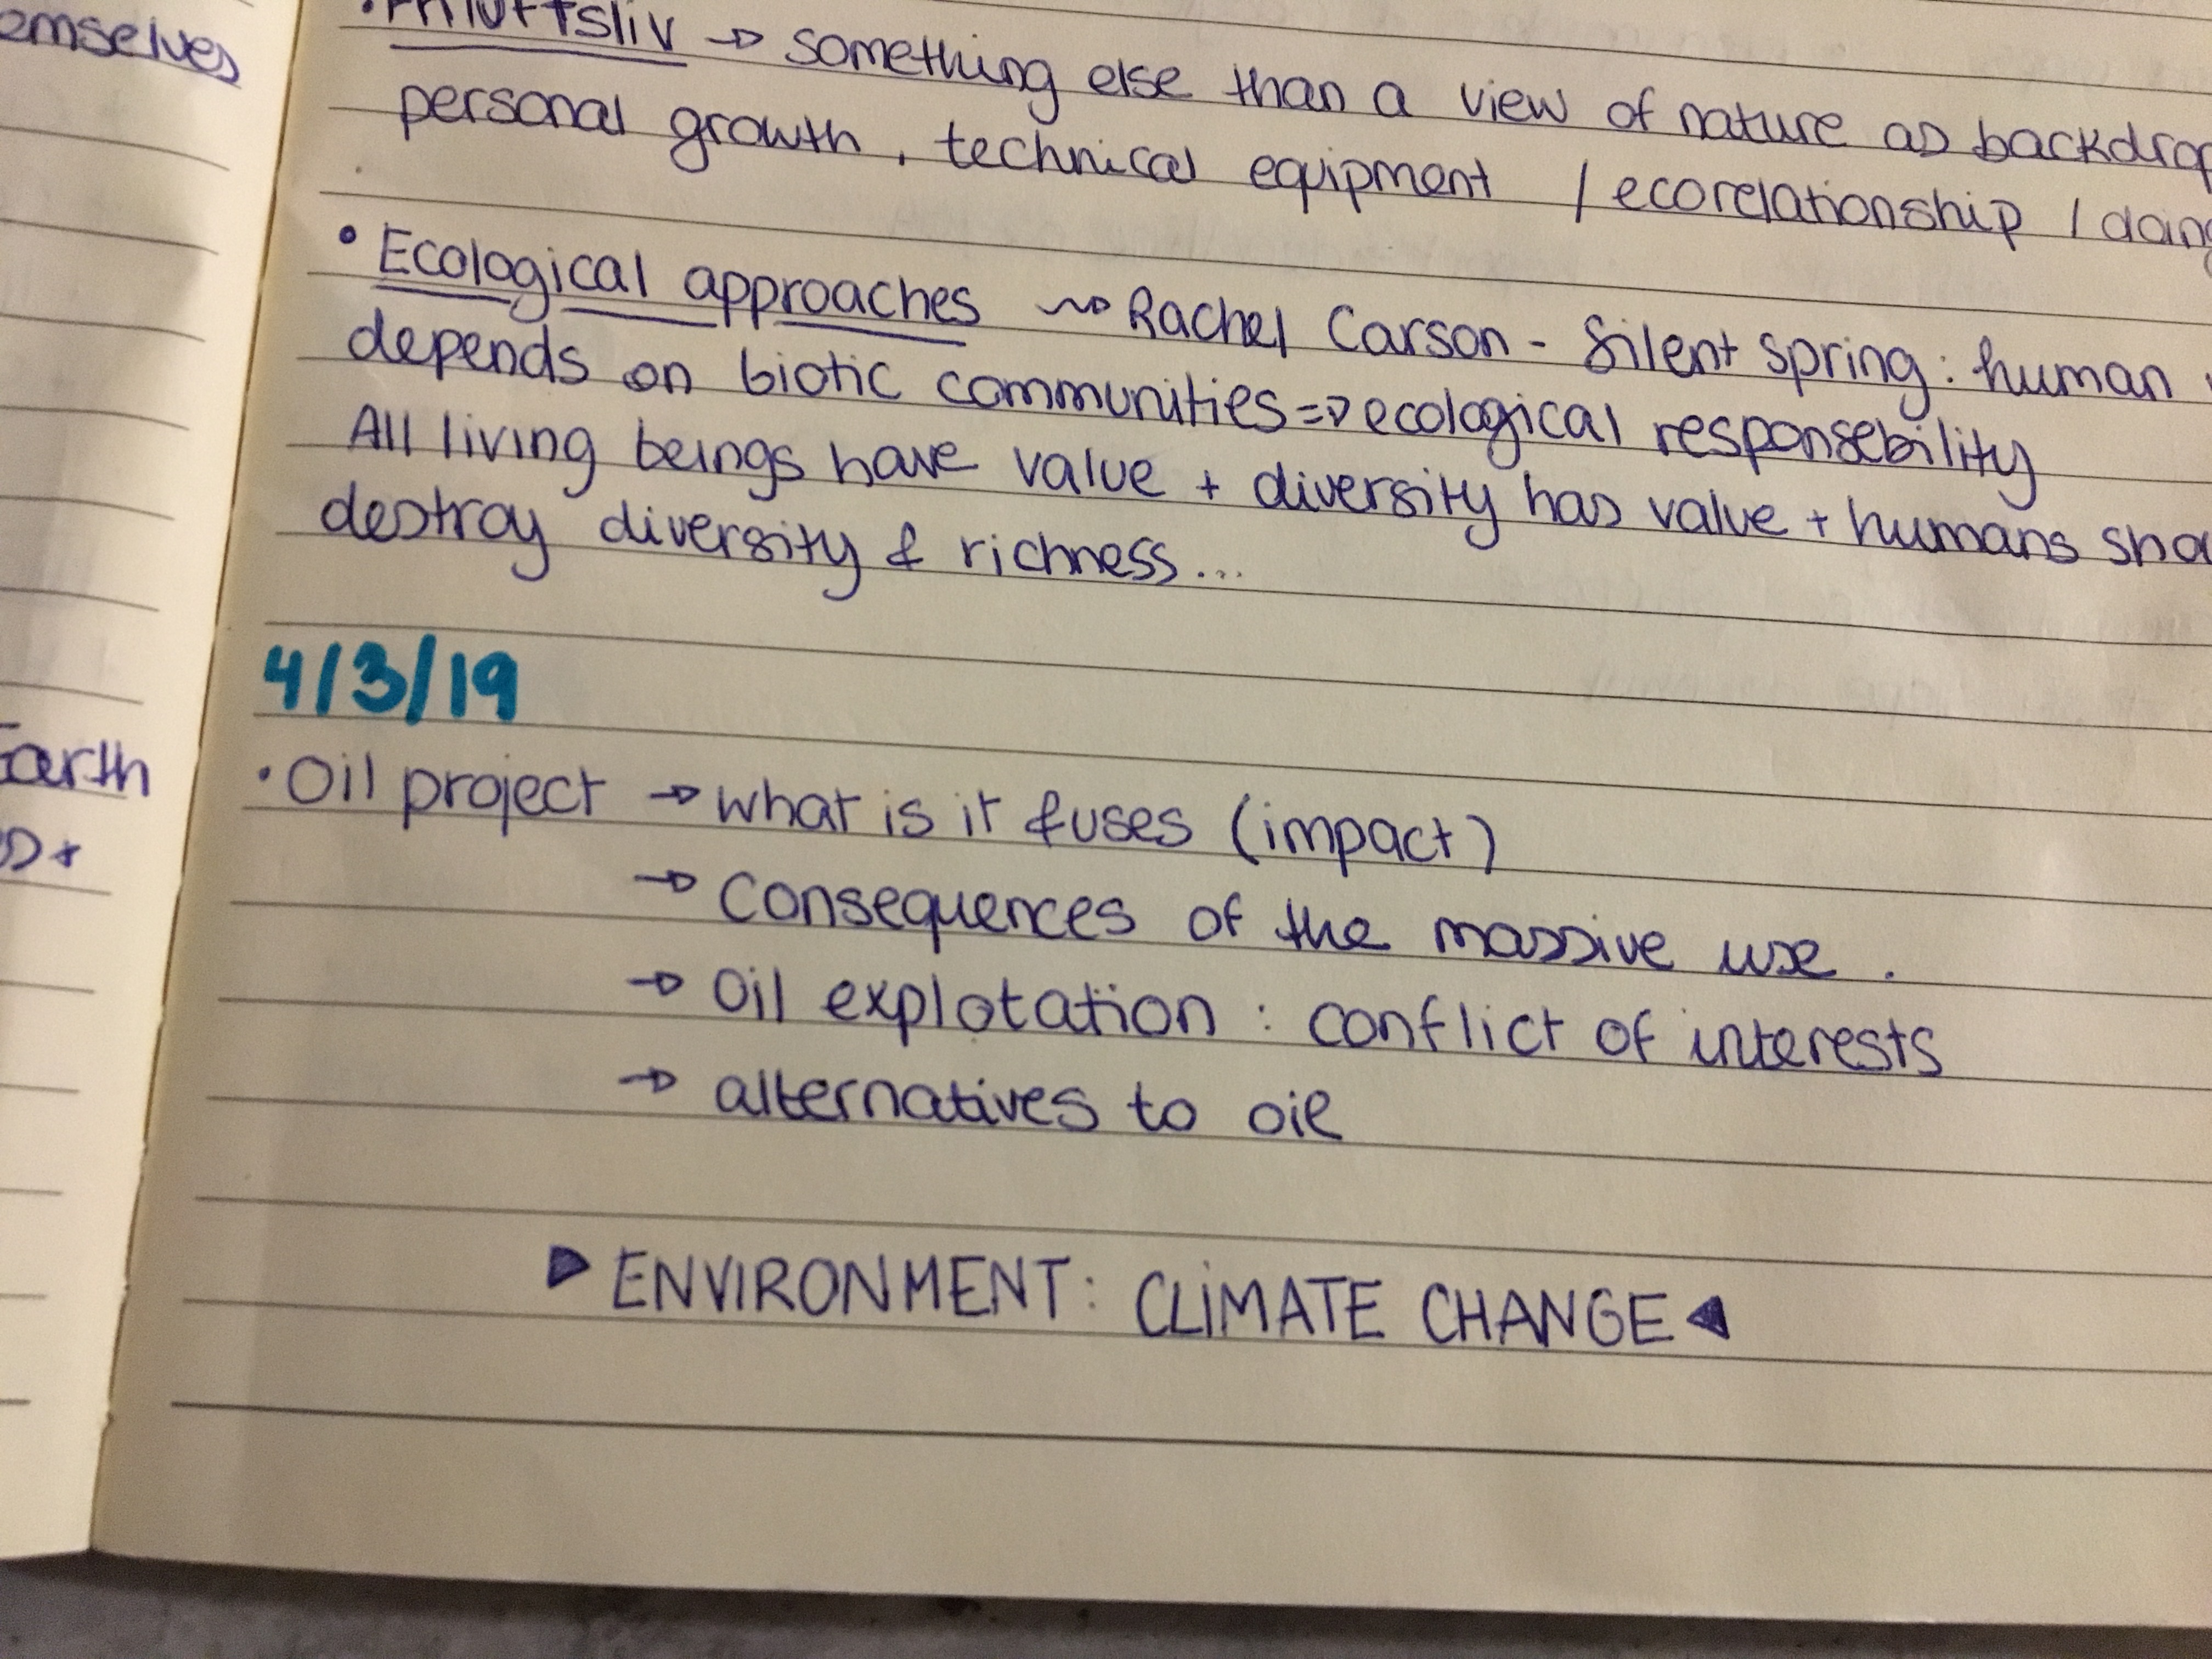 emselves
Earth
• Friluftsliv → something else than a view of nature as backdrop
personal growth, technical equipment / ecorelationship / doing
• Ecological approaches ⤳ Rachel Carson - Silent spring: human
depends on biotic communities => ecological responsebility
All living beings have value + diversity has value + humans
destroy diversity & richness...
4/3/19
• Oil project → what is it & uses (impact)
→ Consequences of the massive use.
→ Oil explotation: conflict of interests
→ alternatives to oil
▶ ENVIRONMENT: CLIMATE CHANGE ◀